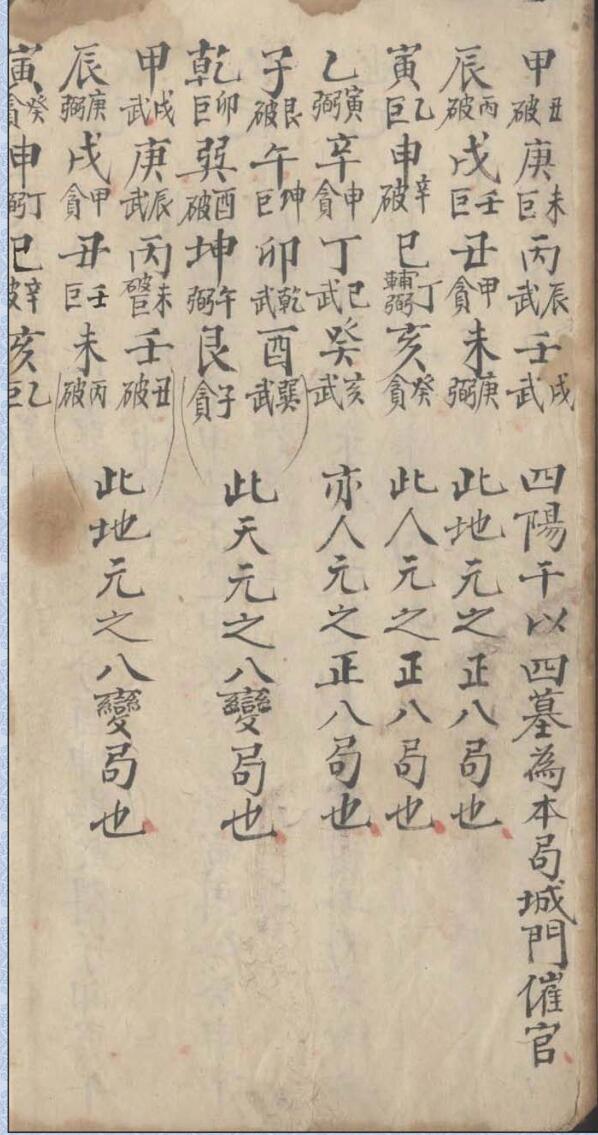 甲丑破庚未巨丙辰武壬戌武四陽干以四墓為本局城門催官
辰丙破戌壬巨丑甲貪未庚弼此地元之正八局也
寅乙巨申辛破巳丁輔弼亥癸貪此人元之正八局也
乙寅弼辛申貪丁巳武癸亥武亦人元之正八局也
子艮破午坤巨卯乾武酉巽武
乾卯巨巽酉破坤午弼艮子貪
此天元之八變局也
甲戌武庚辰武丙未壬丑破
辰庚弼戌甲貪丑壬巨未丙破
此地元之八變局也
寅癸貪申丁弼巳辛破亥乙巨